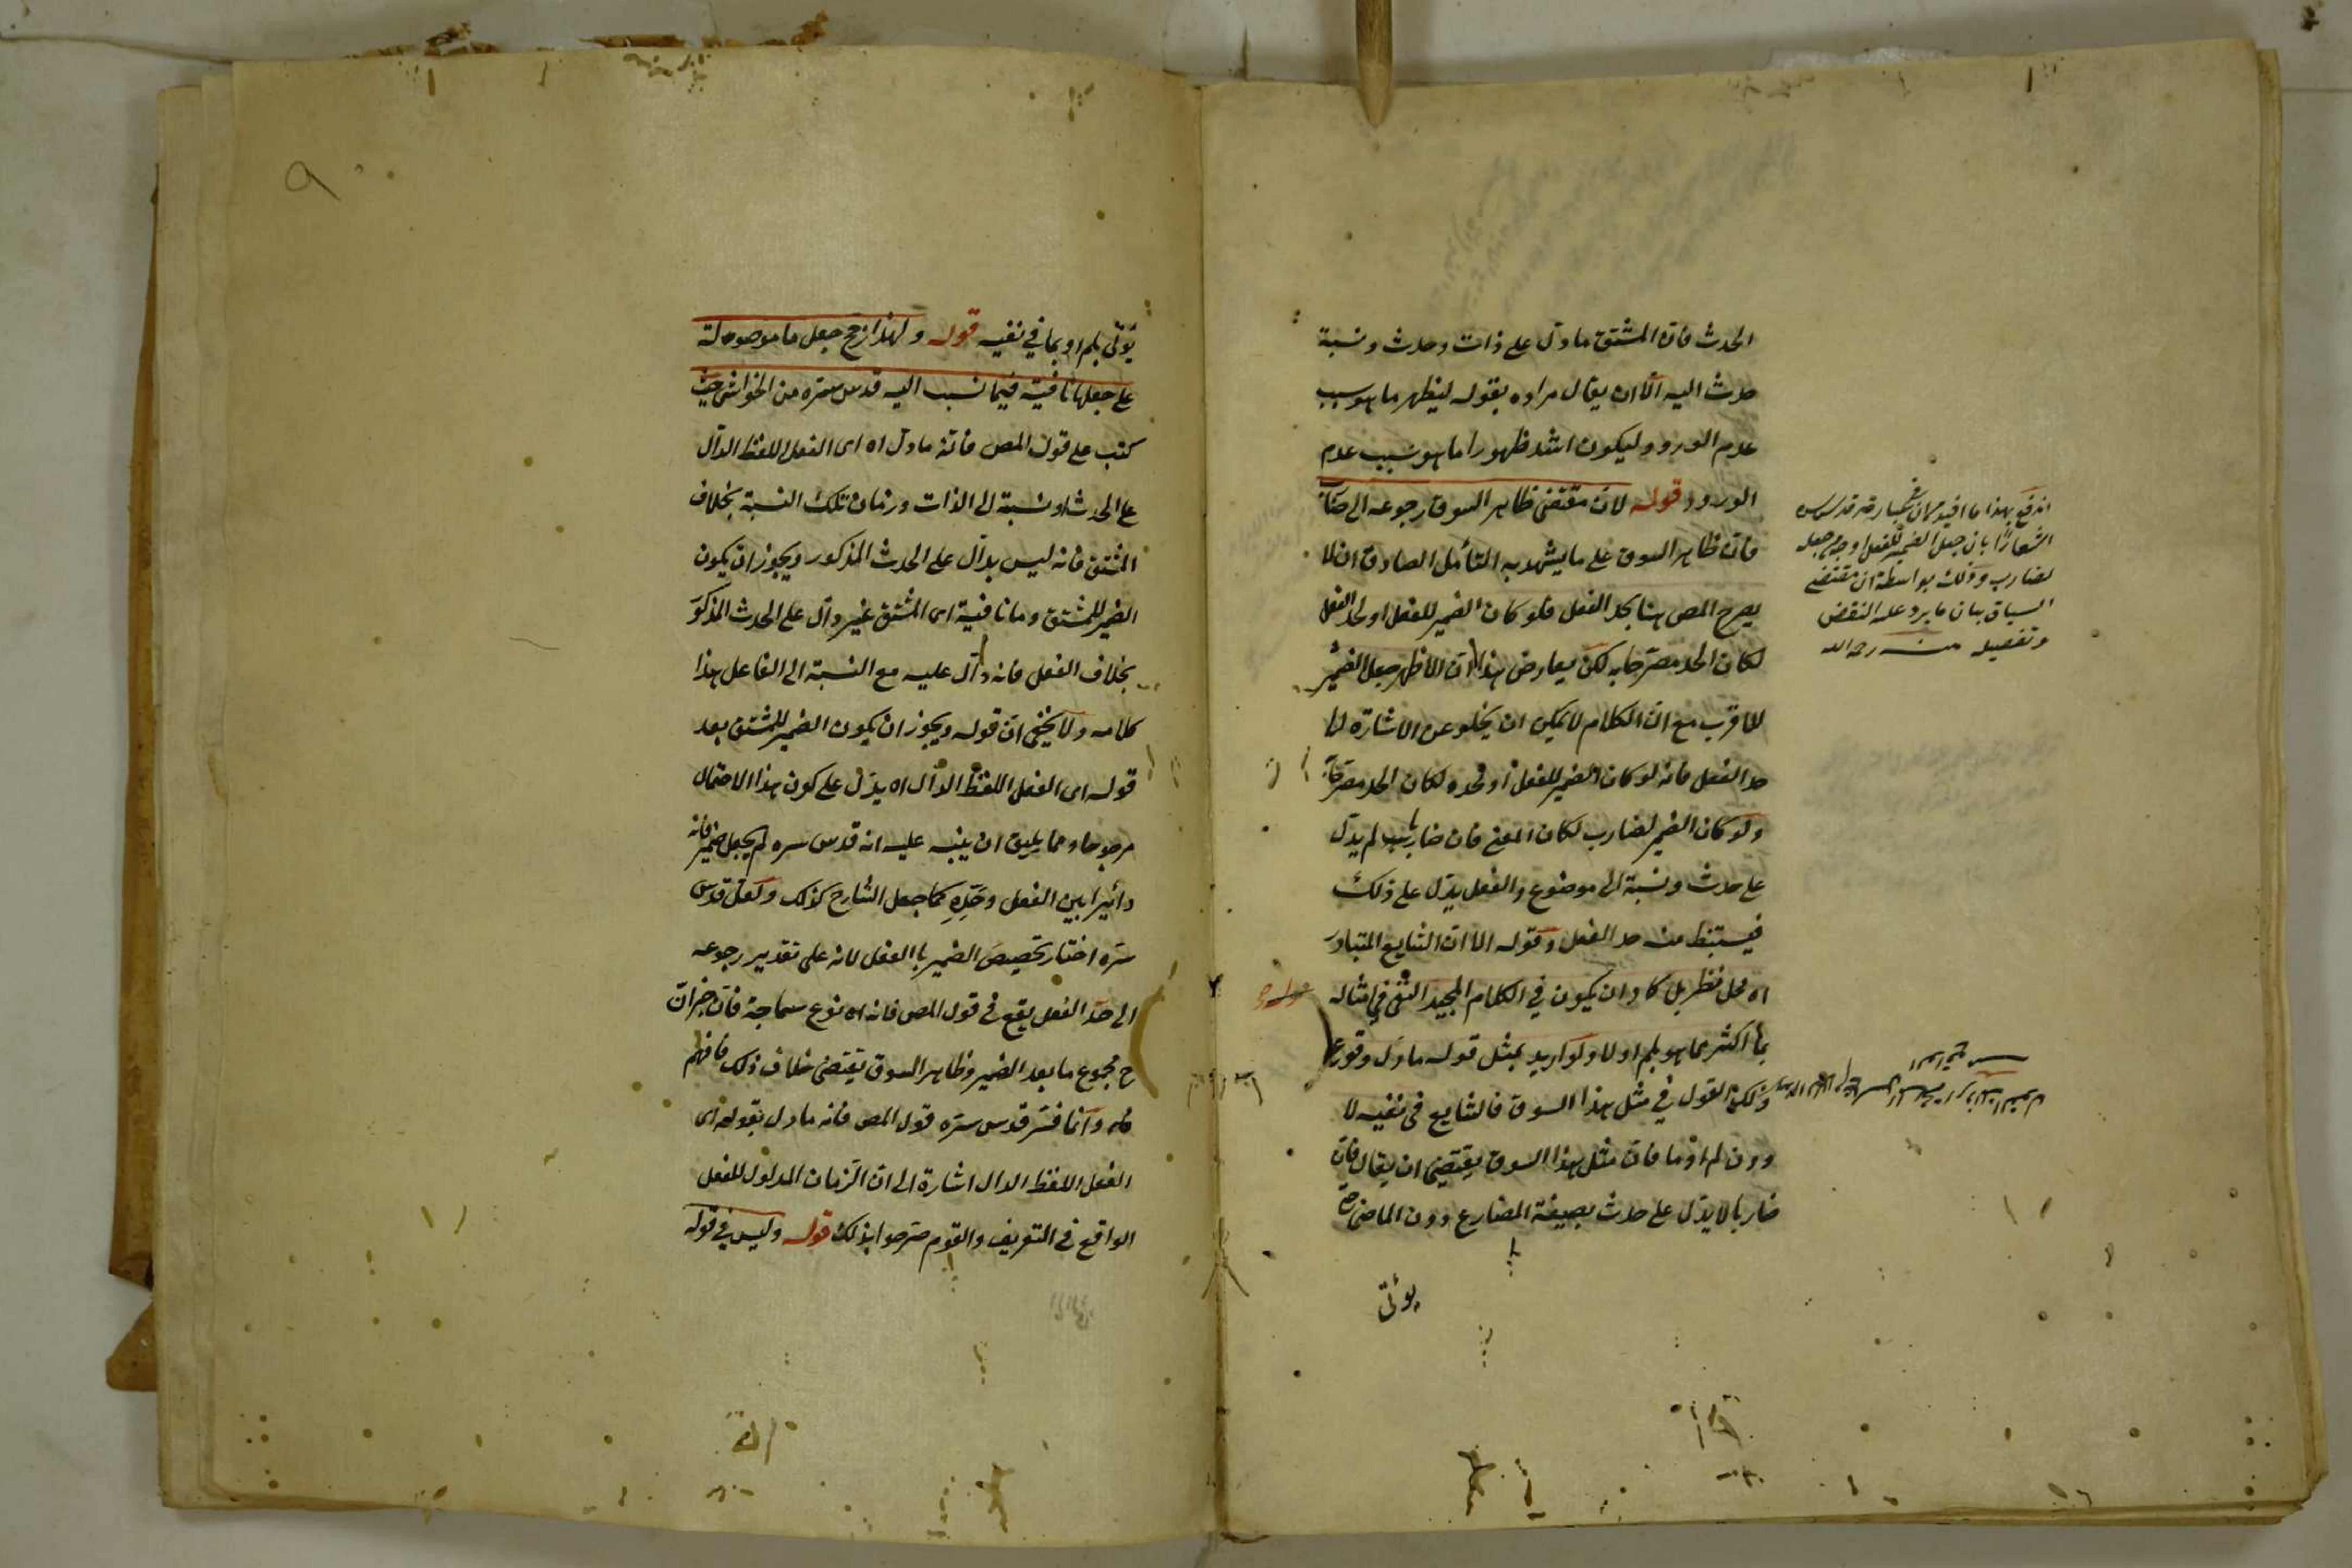 الحدث فان المشتق ما دل على ذات وحدث ونسبة
حدث اليه الا ان يقال مراده بقوله ليظهر ما هو سبب
عدم الورود وليكون اشد ظهورا ما هو سبب عدم
الورود قوله لان مقتضى ظاهر السوق رجوعه الى ضا
فان ظاهر السوق على ما يشهد به التأمل الصادق ان لا
يصرح المص هنا بحد الفعل فلو كان الضمير للفعل او لحد الفعل
لكان الحد مصرحا به لكن يعارض هذا ان الاظهر جعل الضمير
للاقرب مع ان الكلام لا يمكن ان يخلو عن الاشارة الى
حد الفعل فانه لو كان الضمير للفعل او لحده لكان الحد مصرحا
ولو كان الضمير لضارب لكان المعنى فان ضاربا لم يدل
على حدث ونسبة الى موضوع والفعل يدل على ذلك
فيستنبط منه حد الفعل وقوله الا ان الشايع المتبادر
اه محل نظر بل كاد ان يكون في الكلام المجيد النفى في امثاله
بما اكثر مما هو بلم او لا ولو اريد بمثل قوله ما دل وقوع
ذلك القول في مثل هذا السوق فالشايع في نفيه لا
دون لم او ما فان مثل هذا السوق يقتضى ان يقال فان
ضاربا لا يدل على حدث بصيغة المضارع دون الماضى
يؤتى
اندفع بهذا ما افيد
اشعارا بان جعل الضمير للفعل اوجه من جعله
لضارب وذلك بواسطة ان مقتضى
السياق بيان ما يرد عليه النقض
وتفصيله منه رحمه الله
٩
يؤتى بلم او بما في نفيه قوله ولهذا رجح جعل ما موصولة
على جعلها نافية فيما نسب اليه قدس سره من الحواشى حيث
كتب على قول المص فانه ما دل اه اى الفعل اللفظ الدال
على الحدث ونسبة الى الذات وزمان تلك النسبة بخلاف
المشتق فانه ليس بدال على الحدث المذكور ويجوز ان يكون
الضمير للمشتق وما نافية اى المشتق غير دال على الحدث المذكور
بخلاف الفعل فانه دال عليه مع النسبة الى الفاعل هذا
كلامه ولا يخفى ان قوله ويجوز ان يكون الضمير للمشتق بعد
قوله اى الفعل اللفظ الدال اه يدل على كون هذا الاحتمال
مرجوحا ومما يليق ان ينبه عليه انه قدس سره لم يجعل ضمير فانه
دائرا بين الفعل وحده كما جعل الشارح كذلك ولعله قدس
سره اختار تخصيص الضمير با الفعل لانه على تقدير رجوعه
الى حد الفعل يقع في قول المص فانه اه نوع سماجة فان خبر ان
ح مجموع ما بعد الضمير وظاهر السوق يقتضى خلاف ذلك فافهم
وانما فسر قدس سره قول المص فانه ما دل بقوله اى
الفعل اللفظ الدال اشارة الى ان الزمان المدلول للفعل
الواقع في التعريف والقوم صرحوا بذلك قوله وليس في قوله